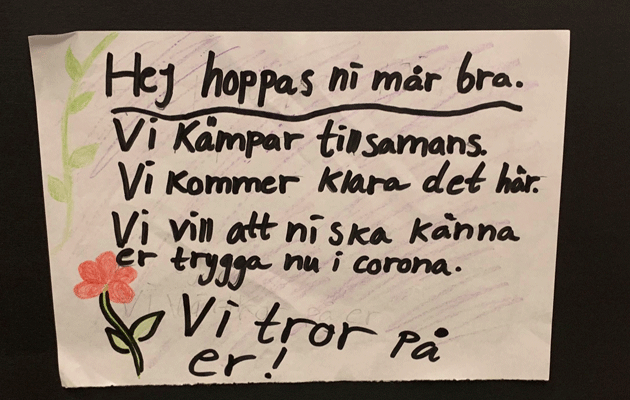 Hej hoppas ni mår bra.
Vi Kämpar tillsamans.
Vi Kommer klara det här.
Vi vill att ni ska känna
er trygga nu i corona.
Vi tror på
er!